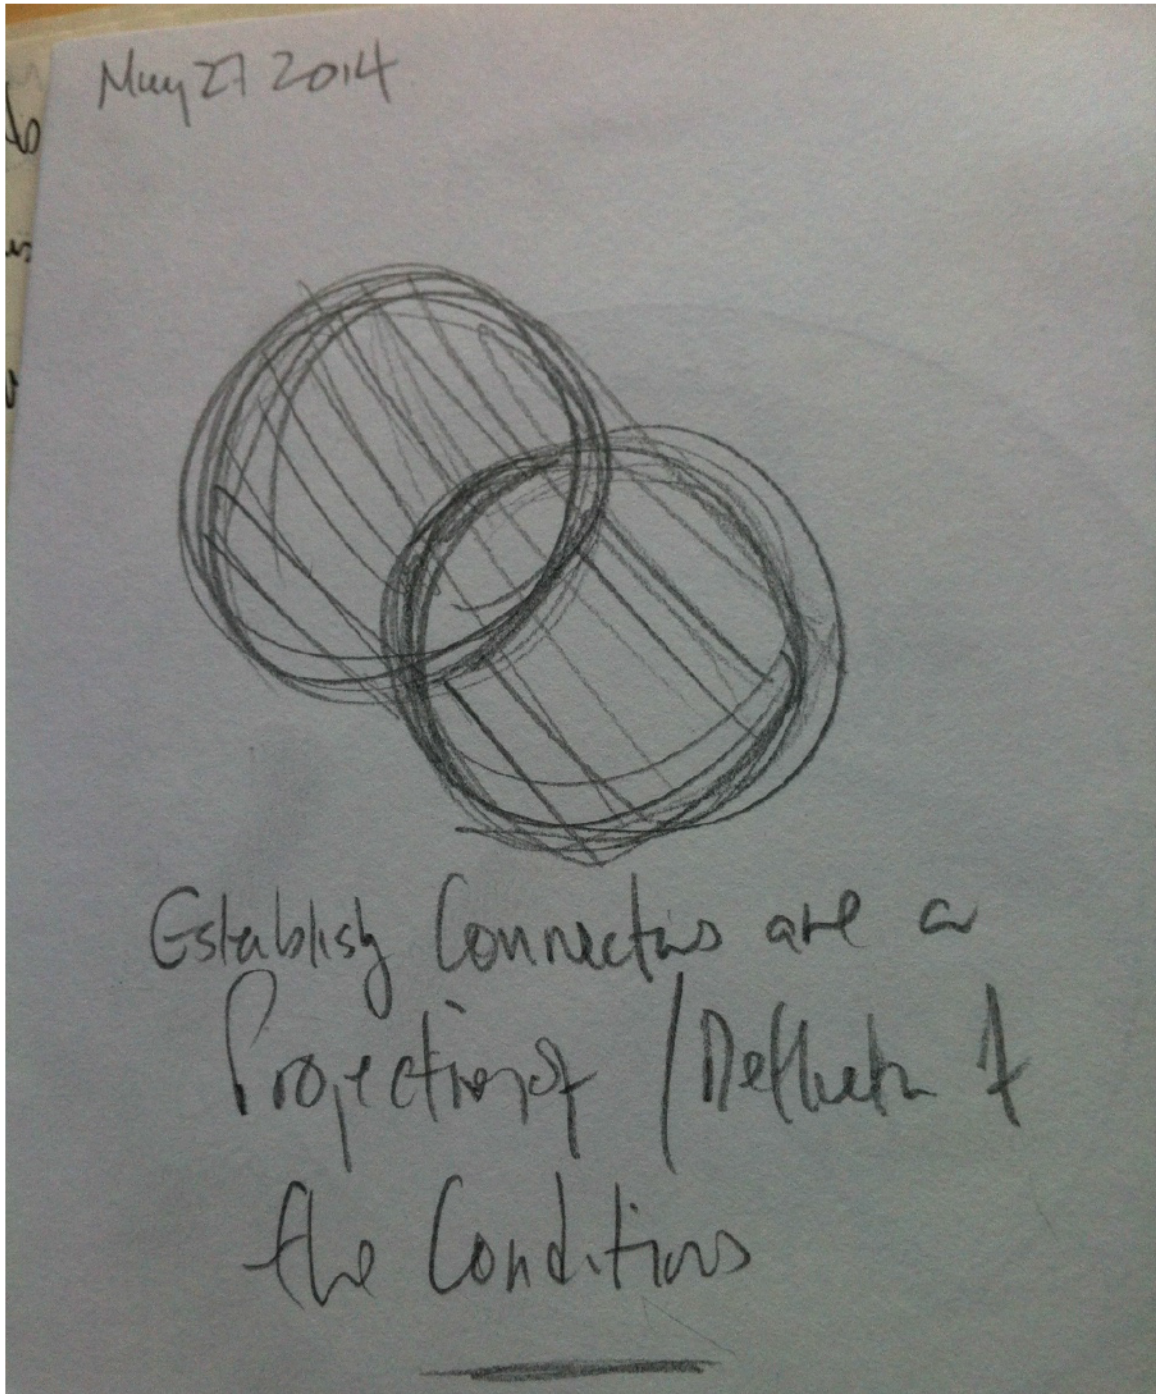 May 27 2014
Establish Connections are a
Projection of /
the Conditions